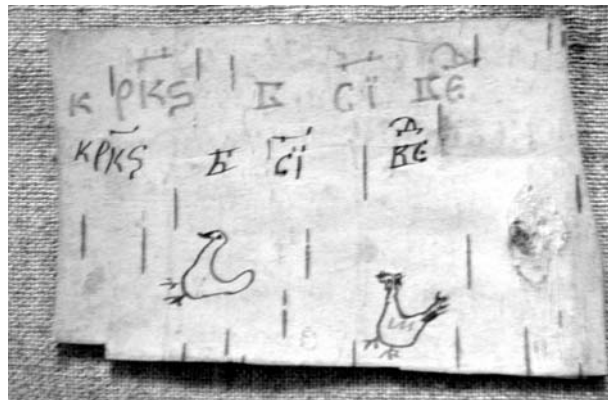 К РК҃Ѕ Б С҃Ї ВЕⷣ
КРК҃Ѕ Б С҃Ї ВЕⷣ